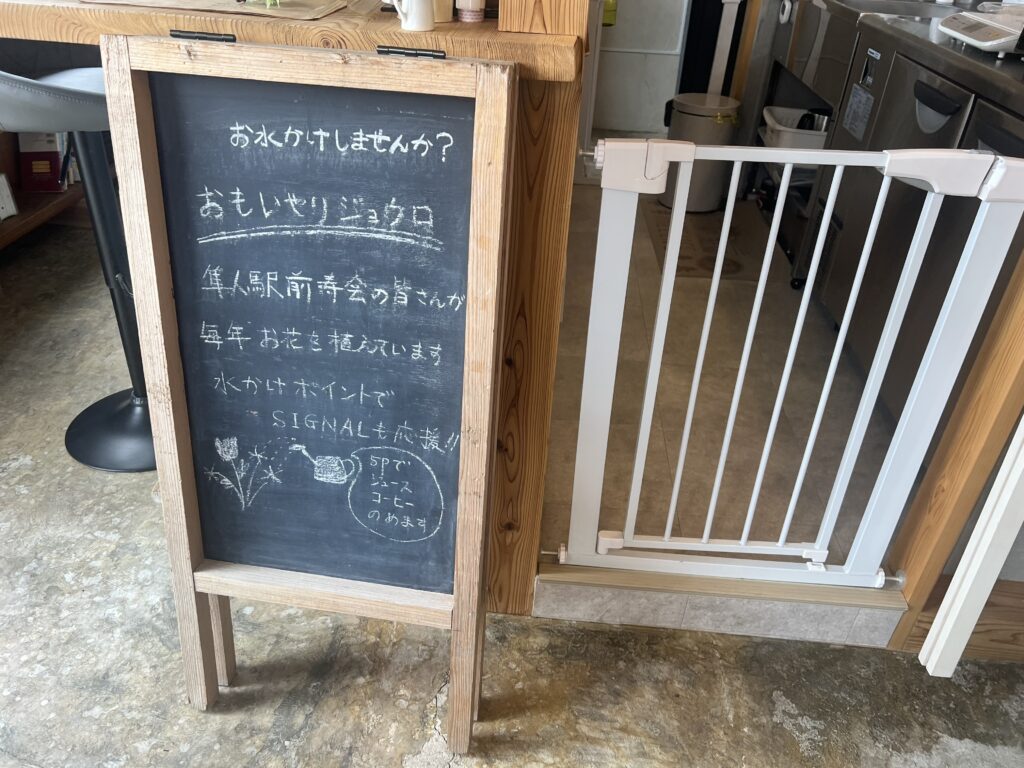 お水かけしませんか?
おもいやりジョウロ
隼人駅前寿会の皆さんが
毎年 お花を植えています
水かけポイントで
SIGNALも応援!!
5Pで
ジュース
コーヒー
のめます